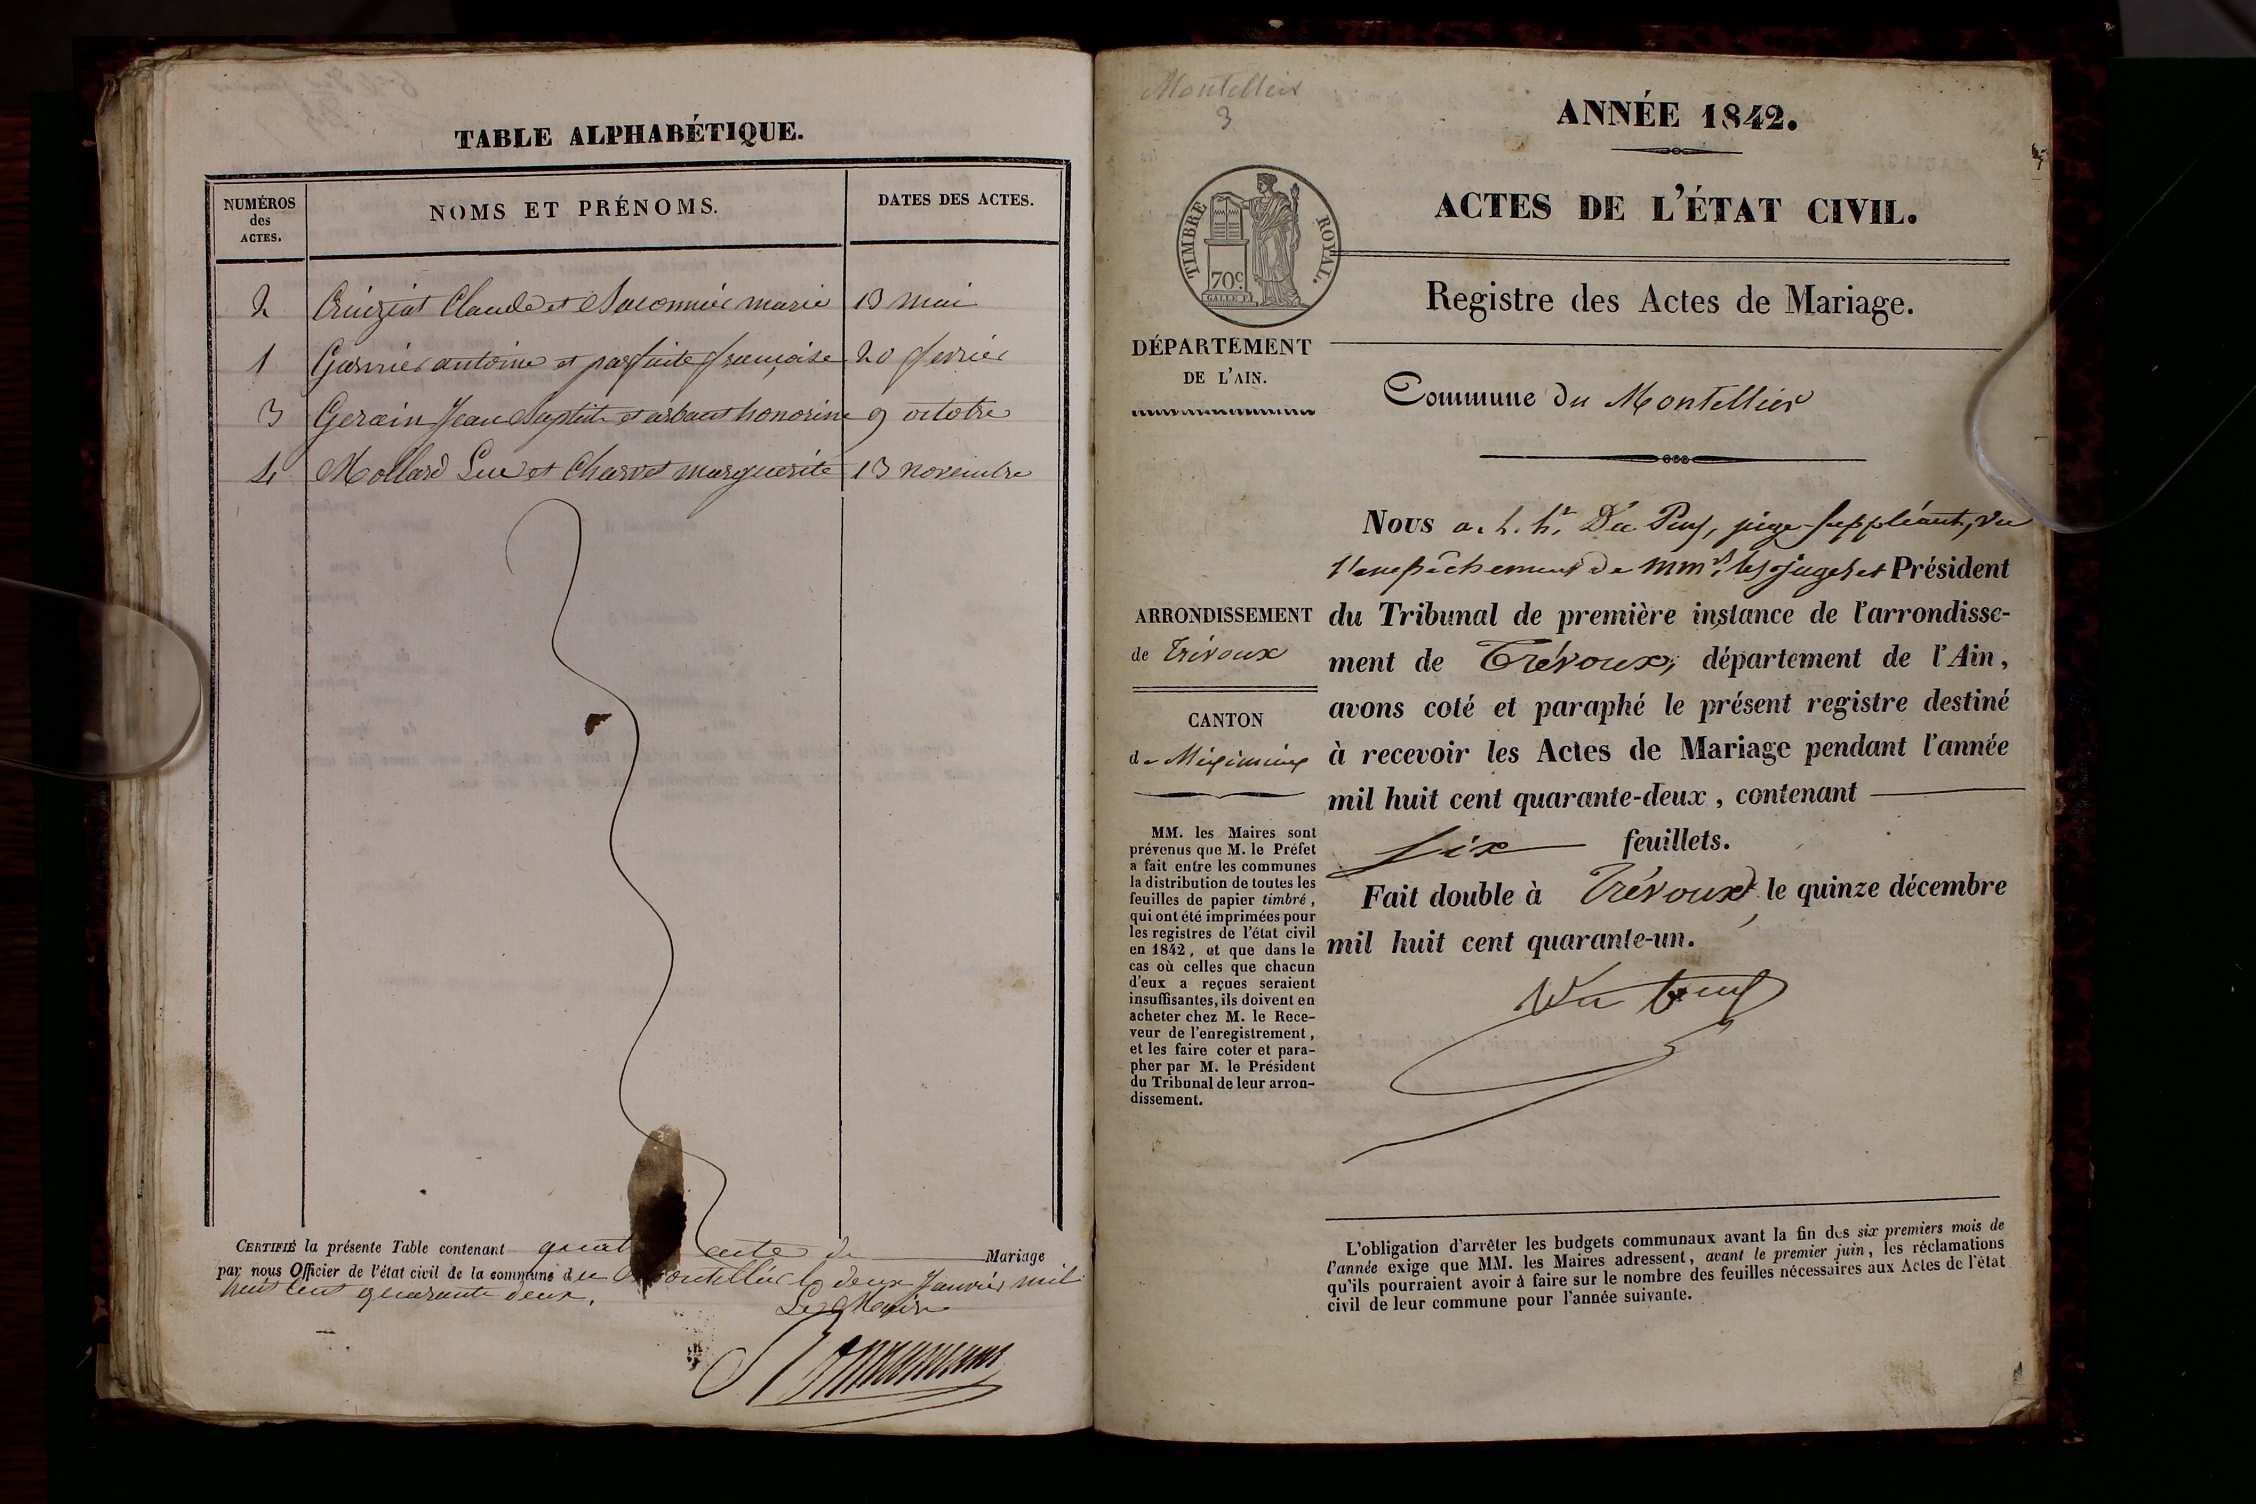 TABLE ALPHABÉTIQUE.
NUMÉROS
des
ACTES.
NOMS ET PRÉNOMS.
DATES DES ACTES.
2 Cruiziat Claude et marie 13 mai
1 Garnier antoine et parfaite françoise 20 fevrier
3 Gerain Jean Baptiste et arbant honorine 9 octobre
4 Mollard Luc et Charvet marguerite 13 novembre
CERTIFIÉ la présente Table contenant acte de Mariage
par nous Officier de l'état civil de la commune du Montellier le deux Janvier mil
huit cent quarante deux.
Le Maire
Montellier
3
ANNÉE 1842.
ACTES DE L'ÉTAT CIVIL.
TIMBRE ROYAL.
70c
GALLE F.
Registre des Actes de Mariage.
DÉPARTEMENT
DE L'AIN.
Commune du Montellier
ARRONDISSEMENT
de Trévoux
CANTON
de Meximieux
MM. les Maires sont
prévenus que M. le Préfet
a fait entre les communes
la distribution de toutes les
feuilles de papier timbré,
qui ont été imprimées pour
les registres de l'état civil
en 1842, et que dans le
cas où celles que chacun
d'eux a reçues seraient
insuffisantes, ils doivent en
acheter chez M. le Rece-
veur de l'enregistrement,
et les faire coter et para-
pher par M. le Président
du Tribunal de leur arron-
dissement.
Nous a. h. hr. Du Puy, juge suppléant, vu
l'empêchement de MMrs. les juges et Président
du Tribunal de première instance de l'arrondisse-
ment de Trévoux, département de l'Ain,
avons coté et paraphé le présent registre destiné
à recevoir les Actes de Mariage pendant l'année
mil huit cent quarante-deux, contenant
six feuillets.
Fait double à Trévoux, le quinze décembre
mil huit cent quarante-un.
Du Puy
L'obligation d'arrêter les budgets communaux avant la fin des six premiers mois de
l'année exige que MM. les Maires adressent, avant le premier juin, les réclamations
qu'ils pourraient avoir à faire sur le nombre des feuilles nécessaires aux Actes de l'état
civil de leur commune pour l'année suivante.